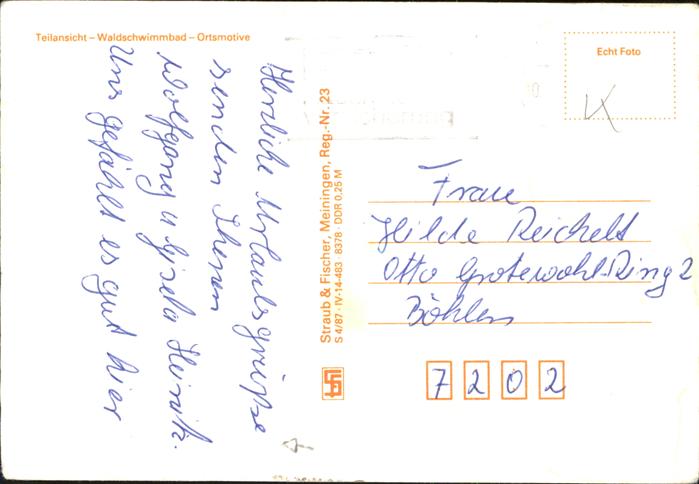 Teilansicht – Waldschwimmbad – Ortsmotive
Echt Foto
Herzliche Urlaubsgrüße
senden Ihnen
Wolfgang u. Gisela Heinitz.
Uns gefählt es gut hier
Straub & Fischer, Meiningen, Reg.-Nr. 23
S 4/87 · IV-14-483 8378 · DDR 0,25 M
Frau
Hilde Reichelt
Otto Grotewohl-Ring 2
Böhlen
7202